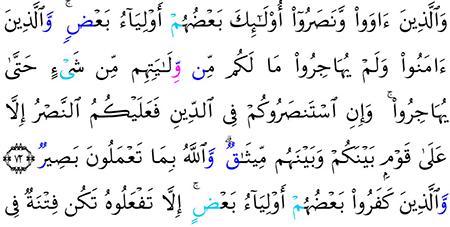 وَٱلَّذِينَ ءَاوَوا۟ وَّنَصَرُوٓا۟ أُو۟لَـٰٓئِكَ بَعْضُهُمْ أَوْلِيَآءُ بَعْضٍۢ ۚ وَٱلَّذِينَ
ءَامَنُوا۟ وَلَمْ يُهَاجِرُوا۟ مَا لَكُم مِّن وَّلَـٰيَتِهِم مِّن شَىْءٍ حَتَّىٰ
يُهَاجِرُوا۟ ۚ وَإِنِ ٱسْتَنصَرُوكُمْ فِى ٱلدِّينِ فَعَلَيْكُمُ ٱلنَّصْرُ إِلَّا
عَلَىٰ قَوْمٍۭ بَيْنَكُمْ وَبَيْنَهُم مِّيثَـٰقٌۭ ۗ وَٱللَّهُ بِمَا تَعْمَلُونَ بَصِيرٌۭ ﴿٧٢﴾
وَٱلَّذِينَ كَفَرُوا۟ بَعْضُهُمْ أَوْلِيَآءُ بَعْضٍ ۚ إِلَّا تَفْعَلُوهُ تَكُن فِتْنَةٌۭ فِى